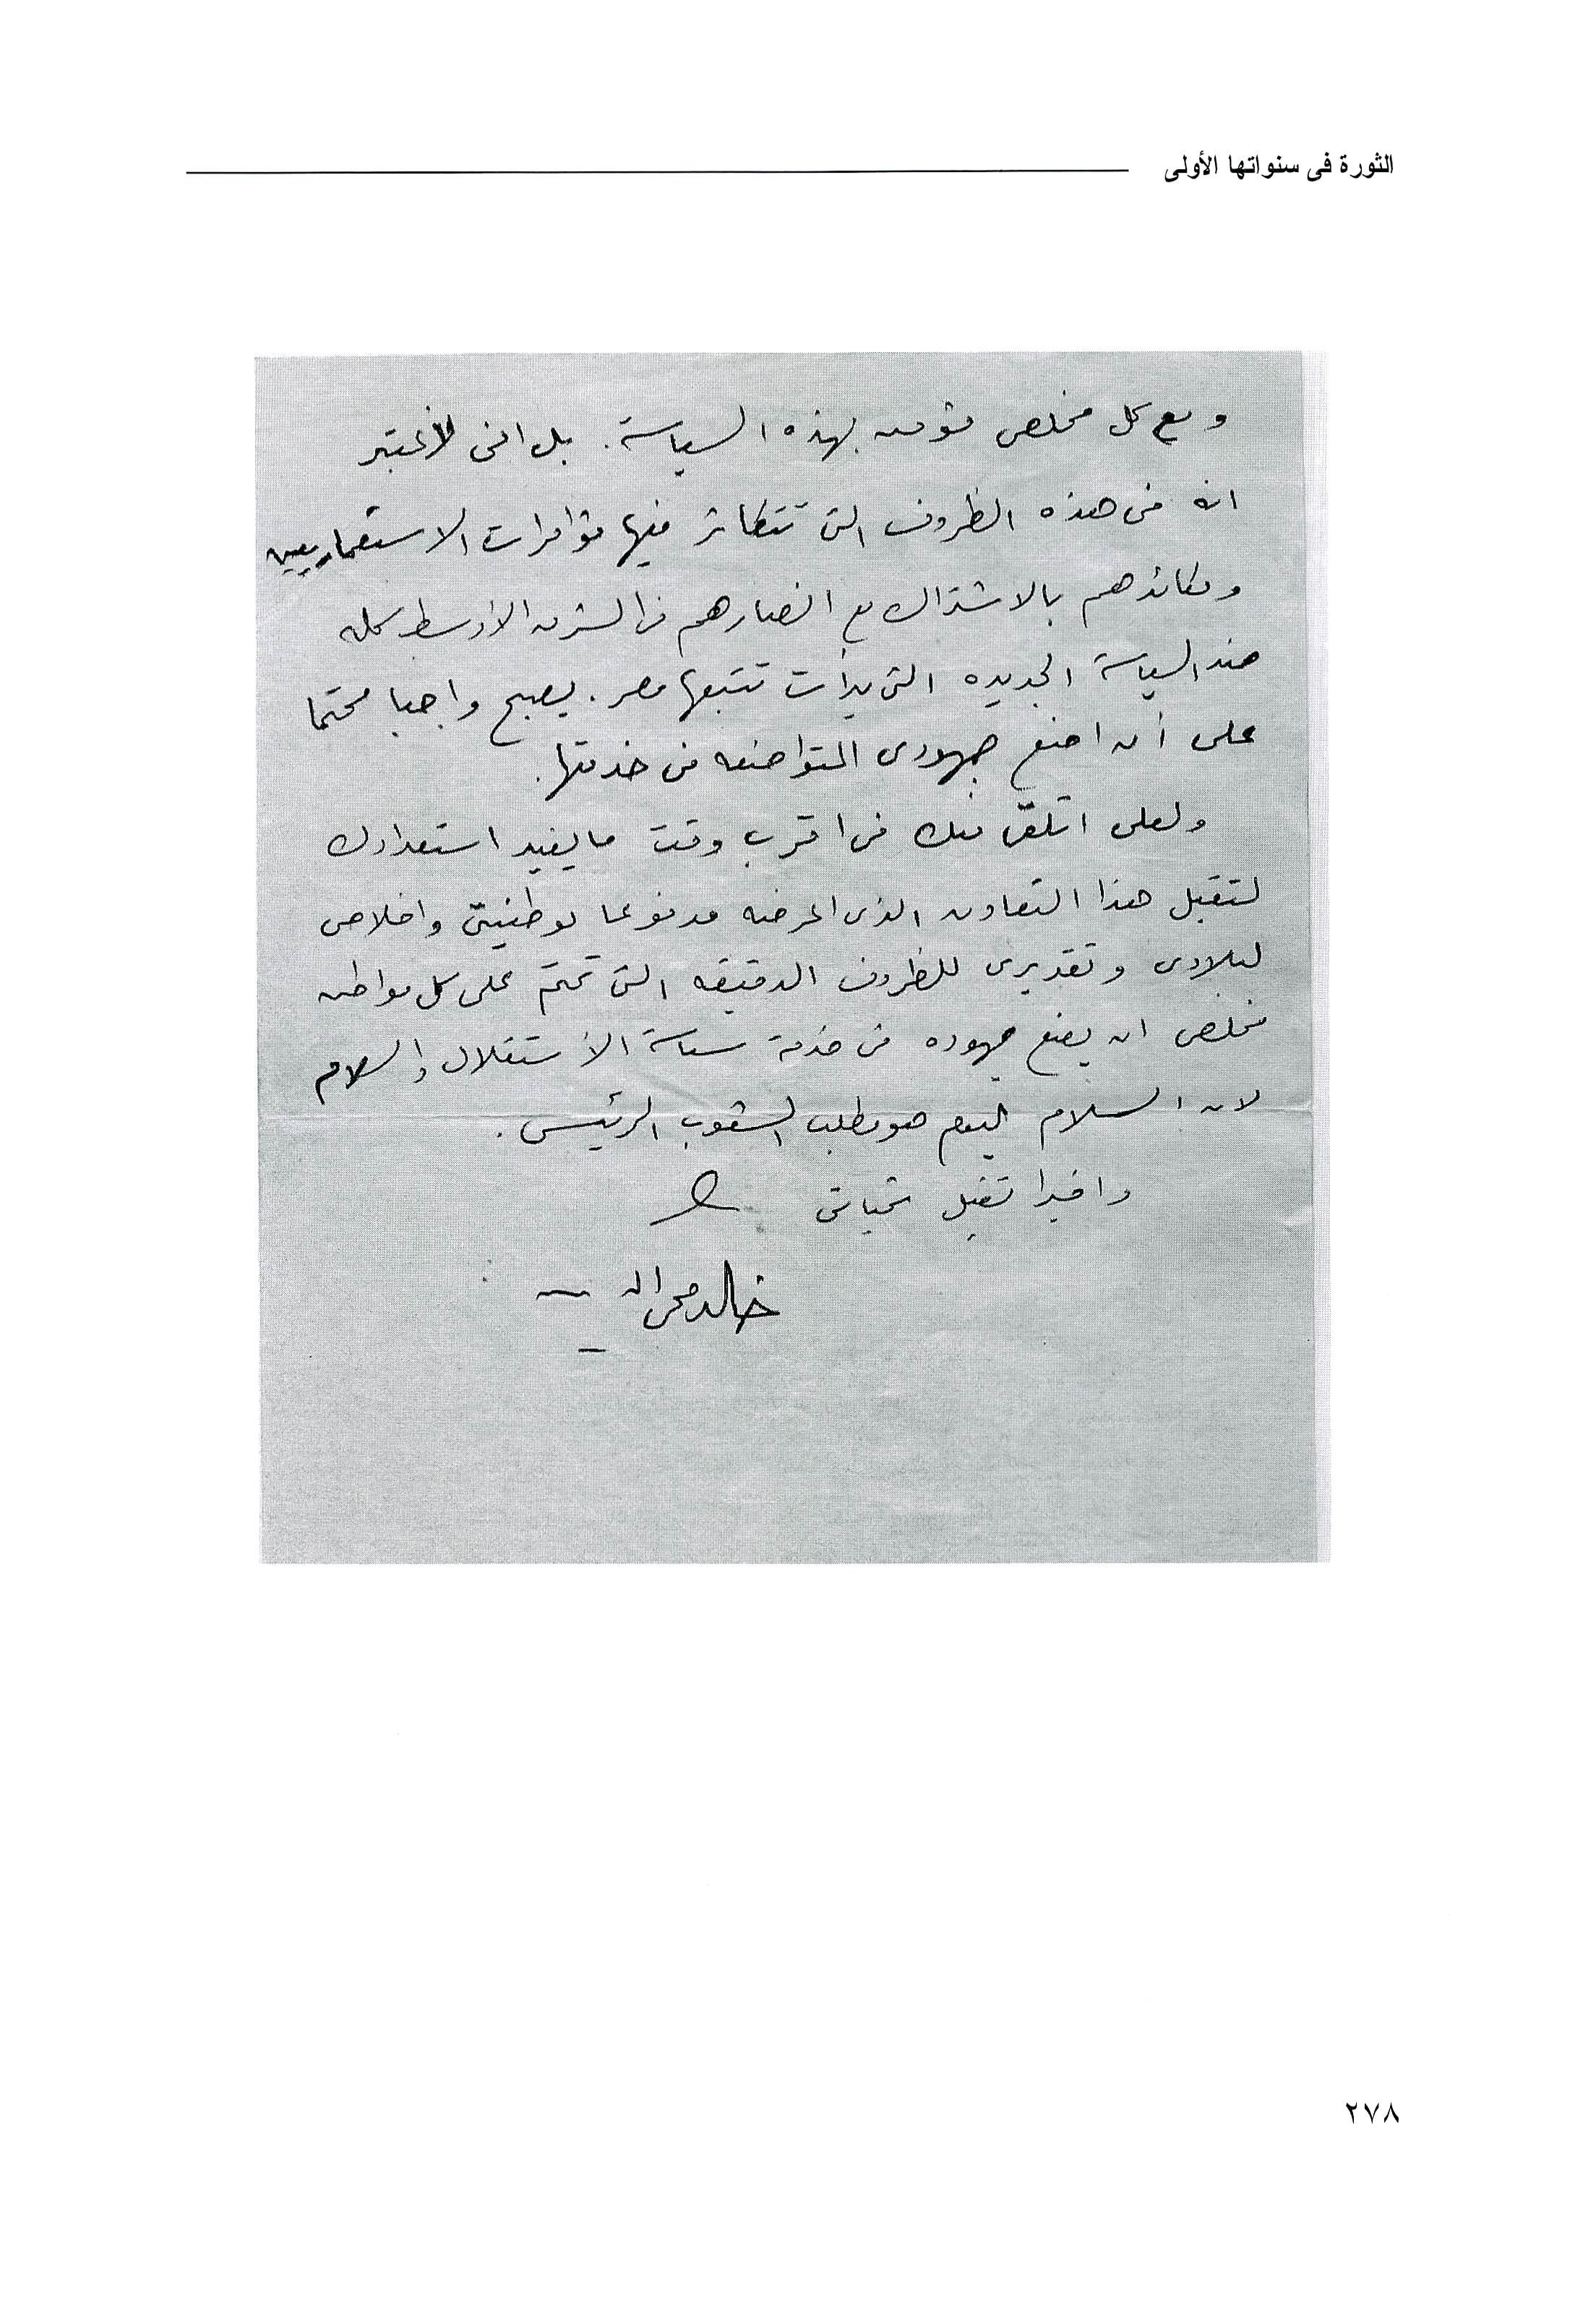 الثورة فى سنواتها الأولى
ومع كل مخلص مؤمن بهذه السياسة. بل اننى لأعتبر
انه فى هذه الظروف التى تتكاثر فيها مؤامرات الاستعماريين
ومكائدهم بالاشتراك مع انصارهم فى الشرق الأوسط كله
ضد السياسة الجديده التى بدأت تتبعها مصر. يصبح واجبا محتما
على أن اضع جهودى المتواضعه فى خدمتها.
ولعلى اتلقى منك فى اقرب وقت ما يفيد استعدادك
لتقبل هذا التعاون الذى اعرضه مدفوعا بوطنيتى واخلاصى
لبلادى وتقديرى للظروف الدقيقه التى تحتم على كل مواطن
مخلص ان يضع جهوده فى خدمة سياسة الأستقلال والسلام
لان السلام اليوم هو مطلب الشعوب الرئيسى.
واخيرا تقبل تحياتى
خالد محى الدين
٢٧٨